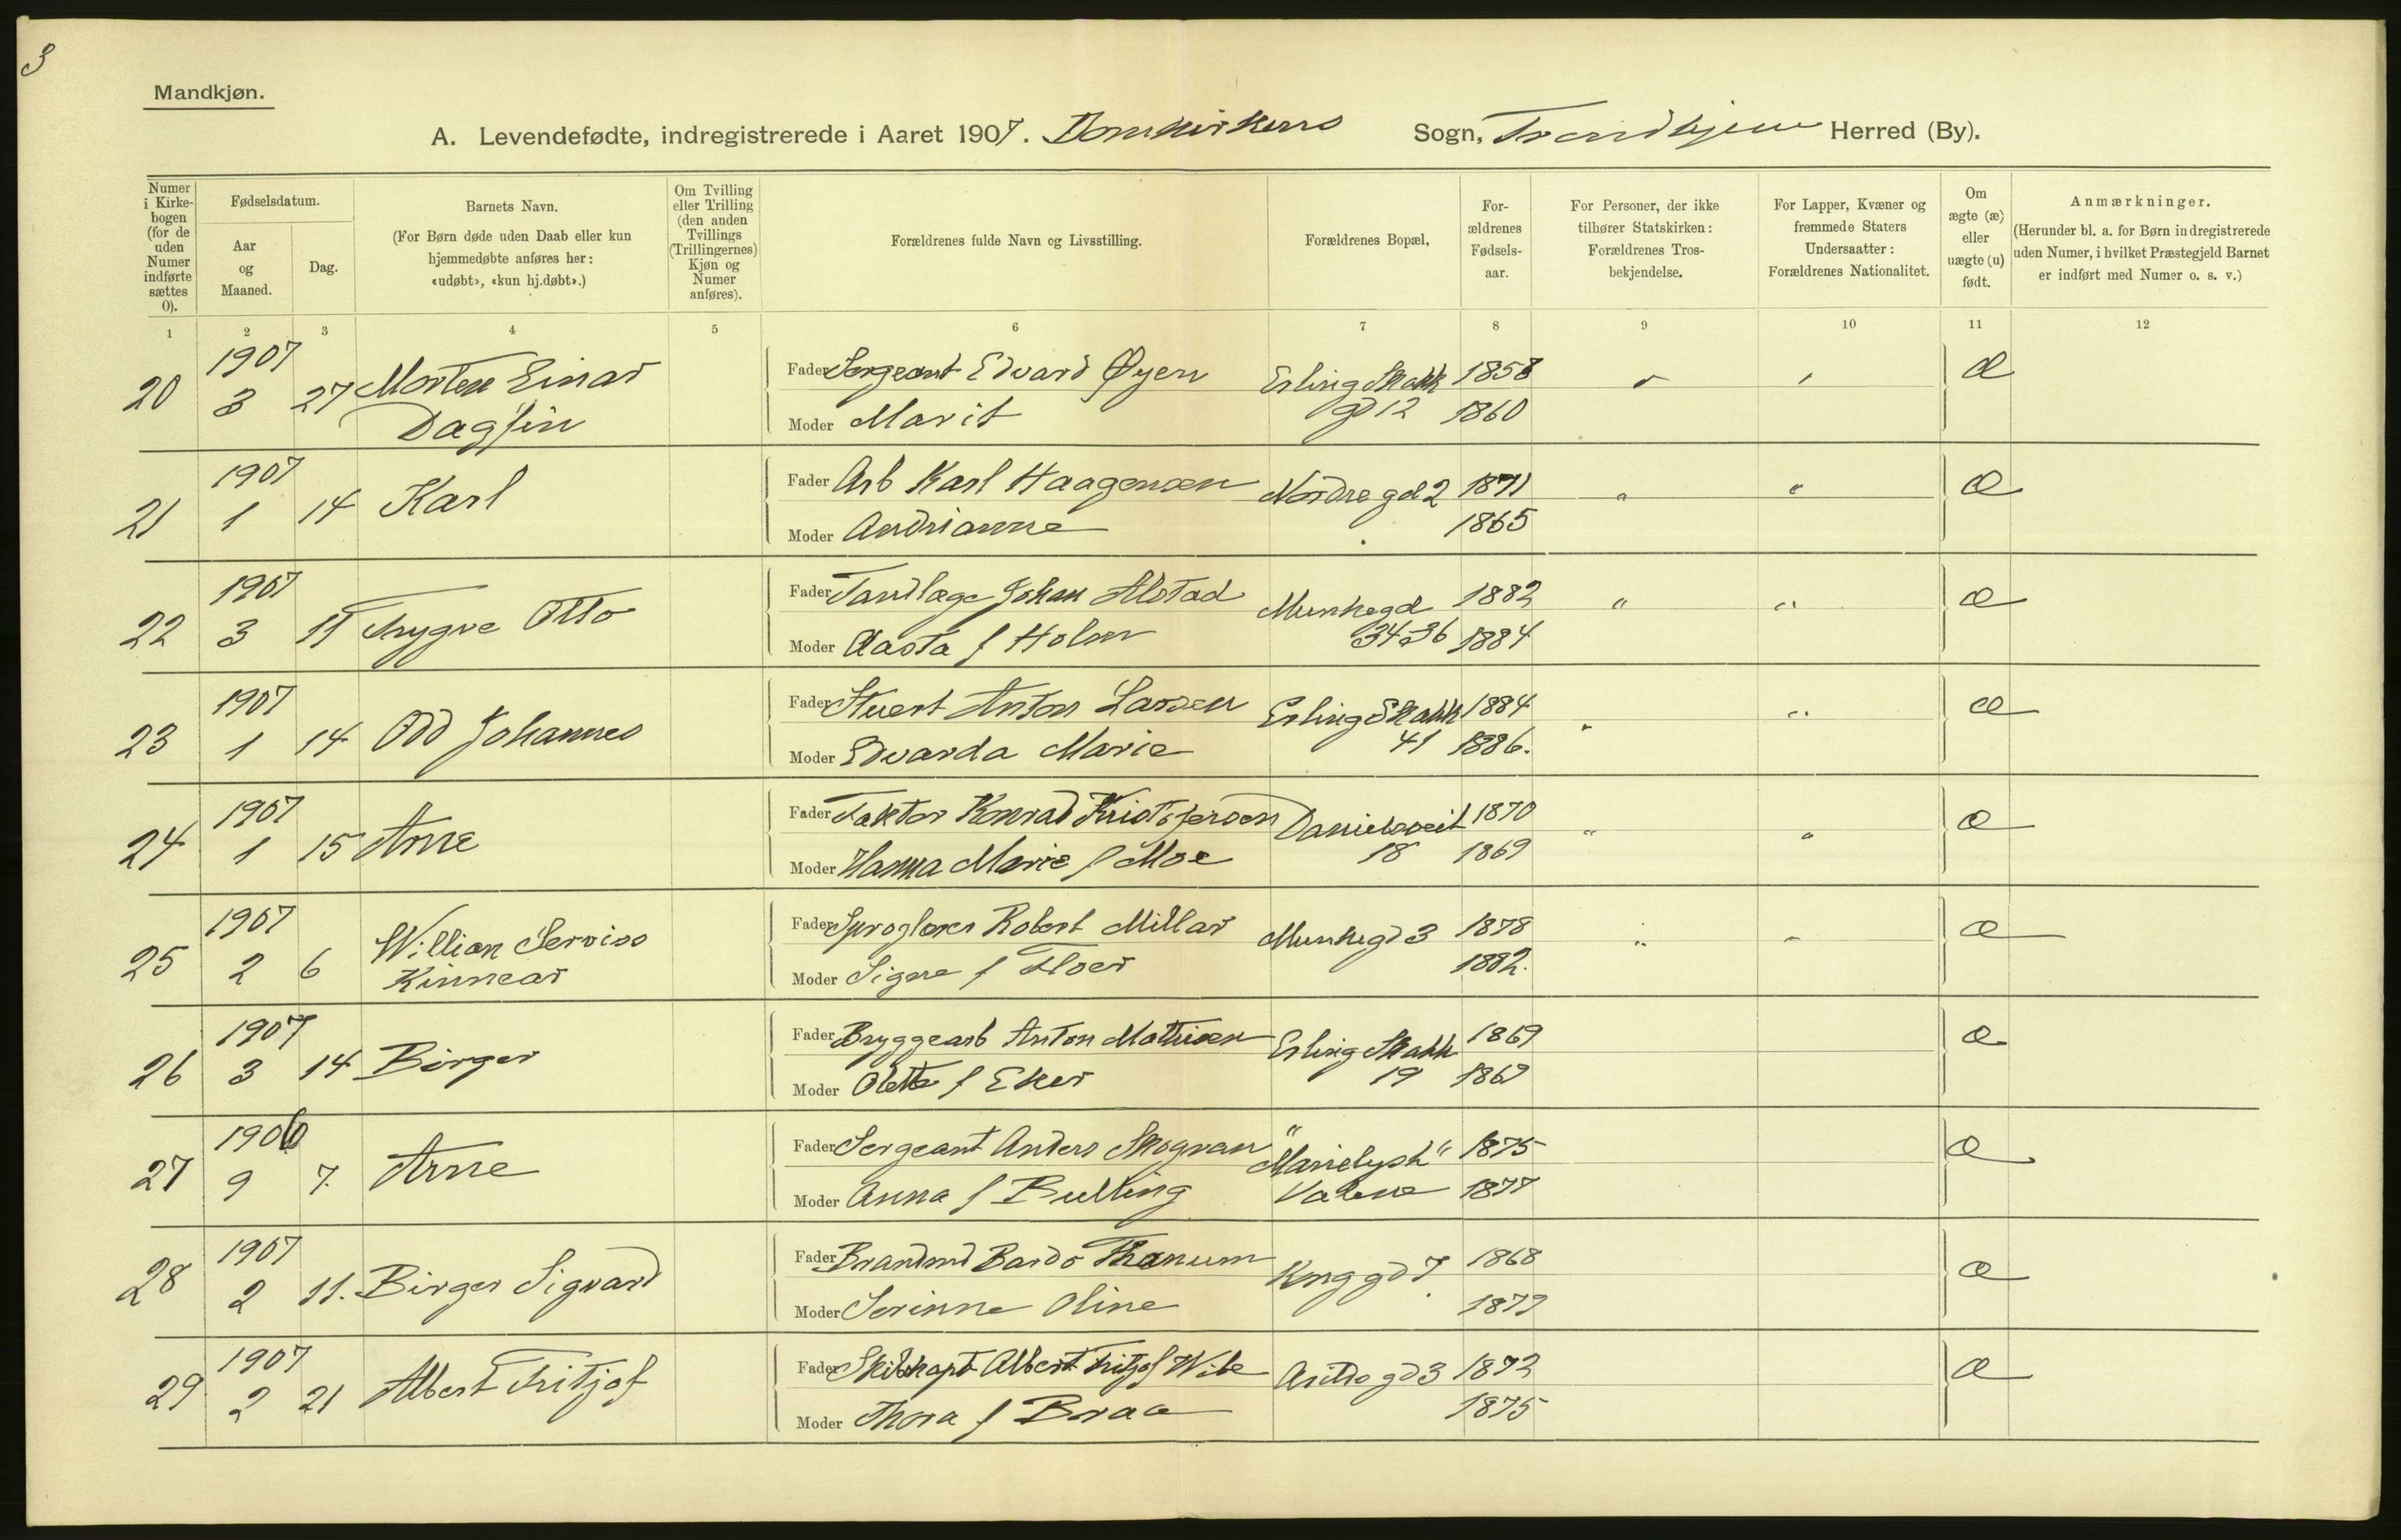 3
Mandkjøn.
A. Levendefødte, indregistrerede i Aaret 1907. Domkirkens Sogn, Trondhjem Herred (By).
Numer i Kirkebogen (for de uden Numer indførte sættes 0).
Fødselsdatum.
Aar og Maaned.
Dag.
Barnets Navn.
(For Børn døde uden Daab eller kun hjemmedøbte anføres her: «udøbt», «kun hj.døbt».)
Om Tvilling eller Trilling (den anden Tvillings (Trillingernes) Kjøn og Numer anføres).
Forældrenes fulde Navn og Livsstilling.
Forældrenes Bopæl,
Forældrenes Fødselsaar.
For Personer, der ikke tilhører Statskirken: Forældrenes Trosbekjendelse.
For Lapper, Kvæner og fremmede Staters Undersaatter: Forældrenes Nationalitet.
Om ægte (æ) eller uægte (u) født.
Anmærkninger.
(Herunder bl. a. for Børn indregistrerede uden Numer, i hvilket Præstegjeld Barnet er indført med Numer o. s. v.)
1 2 3 4 5 6 7 8 9 10 11 12
20 1907 3 27 Morten Einar Dagfin Fader Sergeant Edvard Øyen Erling Skakk gd 12 1858 " " æ
Moder Marit 1860
21 1907 1 14 Karl Fader Arb Karl Haagensen Nordre gd 2 1871 " " æ
Moder Andrianne 1865
22 1907 3 11 Trygve Otto Fader Tandlæge Johan Alstad Munkegd 34-36 1882 " " æ
Moder Aasta f Holm 1884
23 1907 1 14 Odd Johannes Fader Stuert Anton Larsen Erling Skakk 41 1884 " " æ
Moder Edvarda Marie 1886.
24 1907 1 15 Arne Fader Faktor Konrad Kristofersen Danielsveit 18 1870 " " æ
Moder Hanna Marie f Moe 1869
25 1907 2 6 Willian Serviss Kinnear Fader Sproglærer Robert Millar Munkegd 3 1878 " " æ
Moder Signe f Floer 1882.
26 1907 3 14 Birger Fader Bryggearb Anton Mathisen Erling Skakk 19 1869 æ
Moder Olette f Eker 1867
27 1906 9 7. Arne Fader Sergeant Anders Skogvan "Marielyst" 1875 æ
Moder Anna f Bulling 1877
28 1907 2 11. Birger Sigvard Fader Brandmd Bardo Thanum Kng gd 7 1868 æ
Moder Serinne Oline 1879
29 1907 2 21 Albert Fritjof Fader Skibskapt Albert Fritjof Wibe gd 3 1872 æ
Moder Thora f Braa 1875